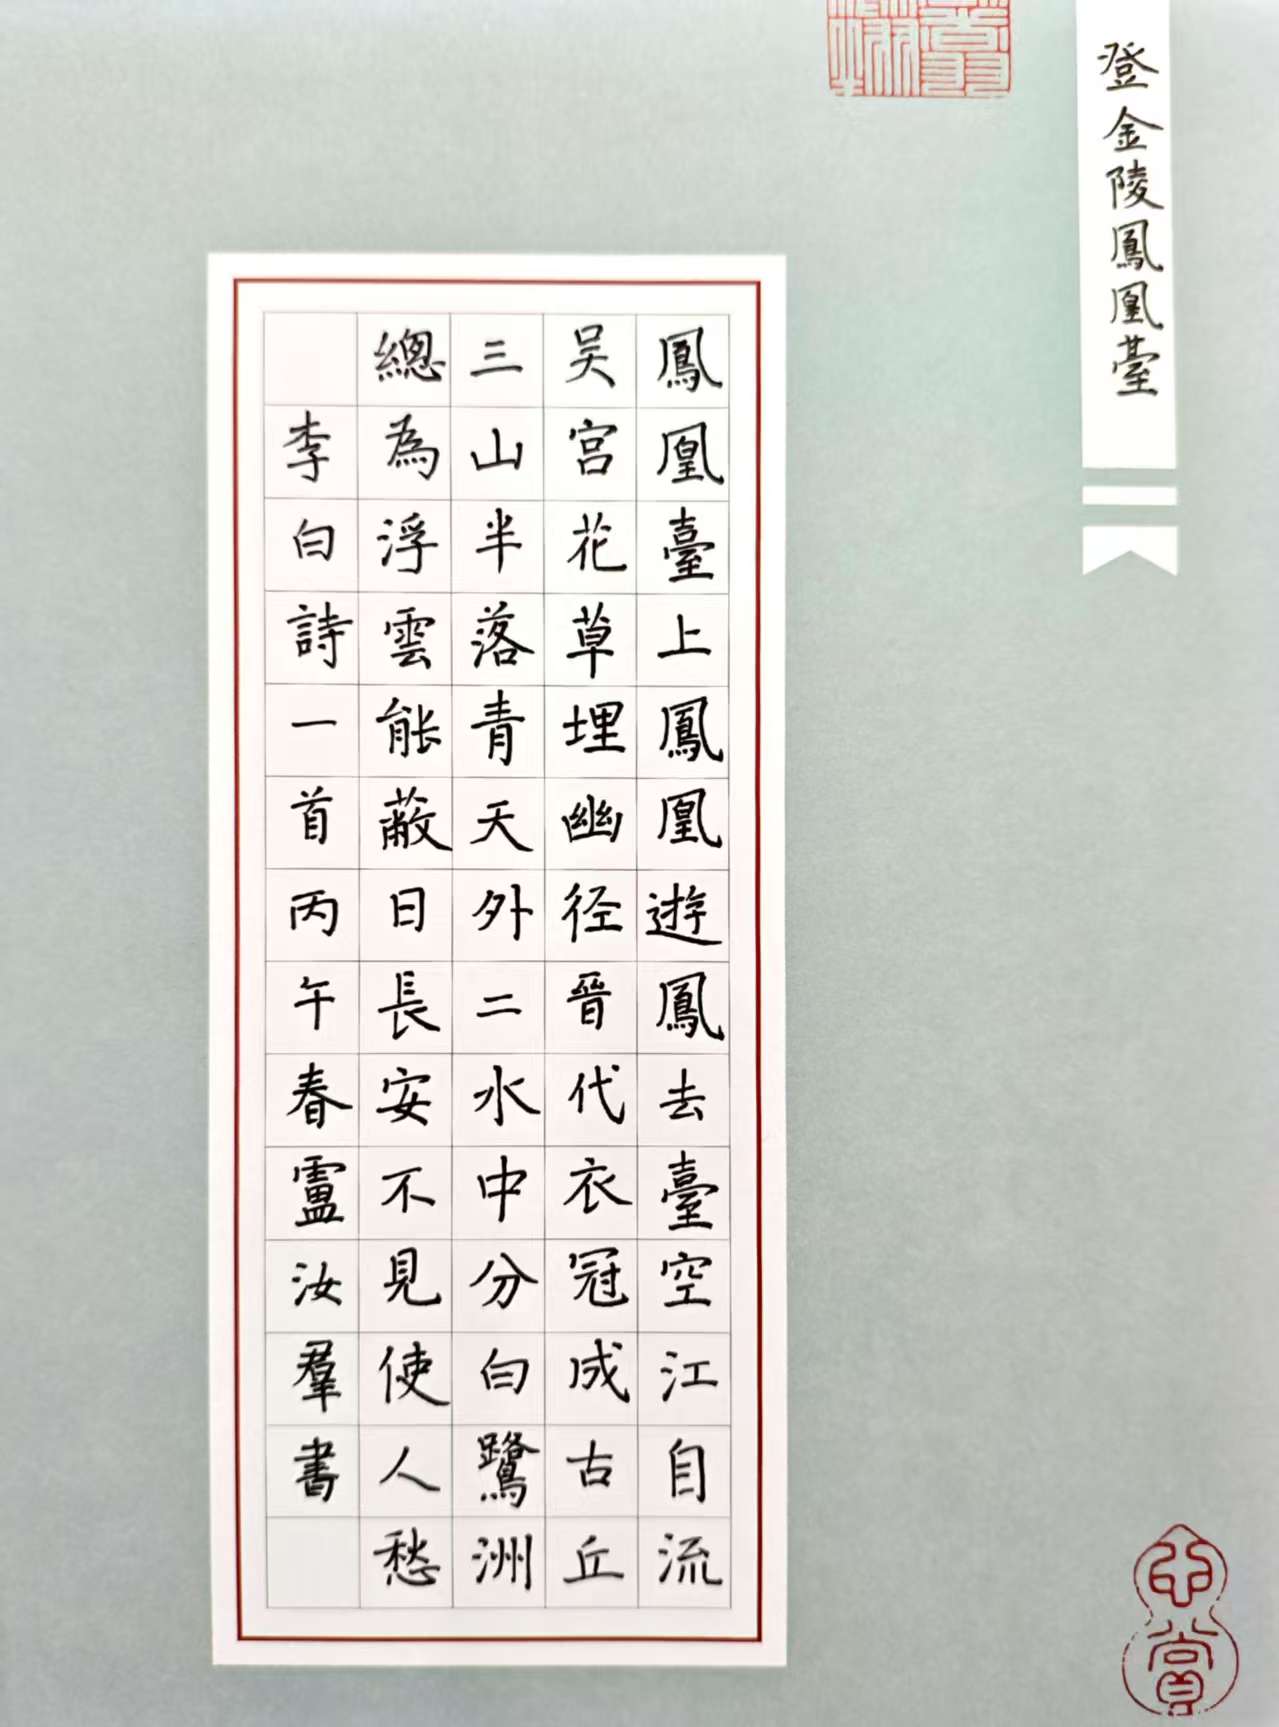 登金陵鳳凰臺
鳳凰臺上鳳凰遊鳳去臺空江自流
吴宫花草埋幽径晉代衣冠成古丘
三山半落青天外二水中分白鷺洲
總為浮雲能蔽日長安不見使人愁
李白詩一首丙午春盧汝羣書